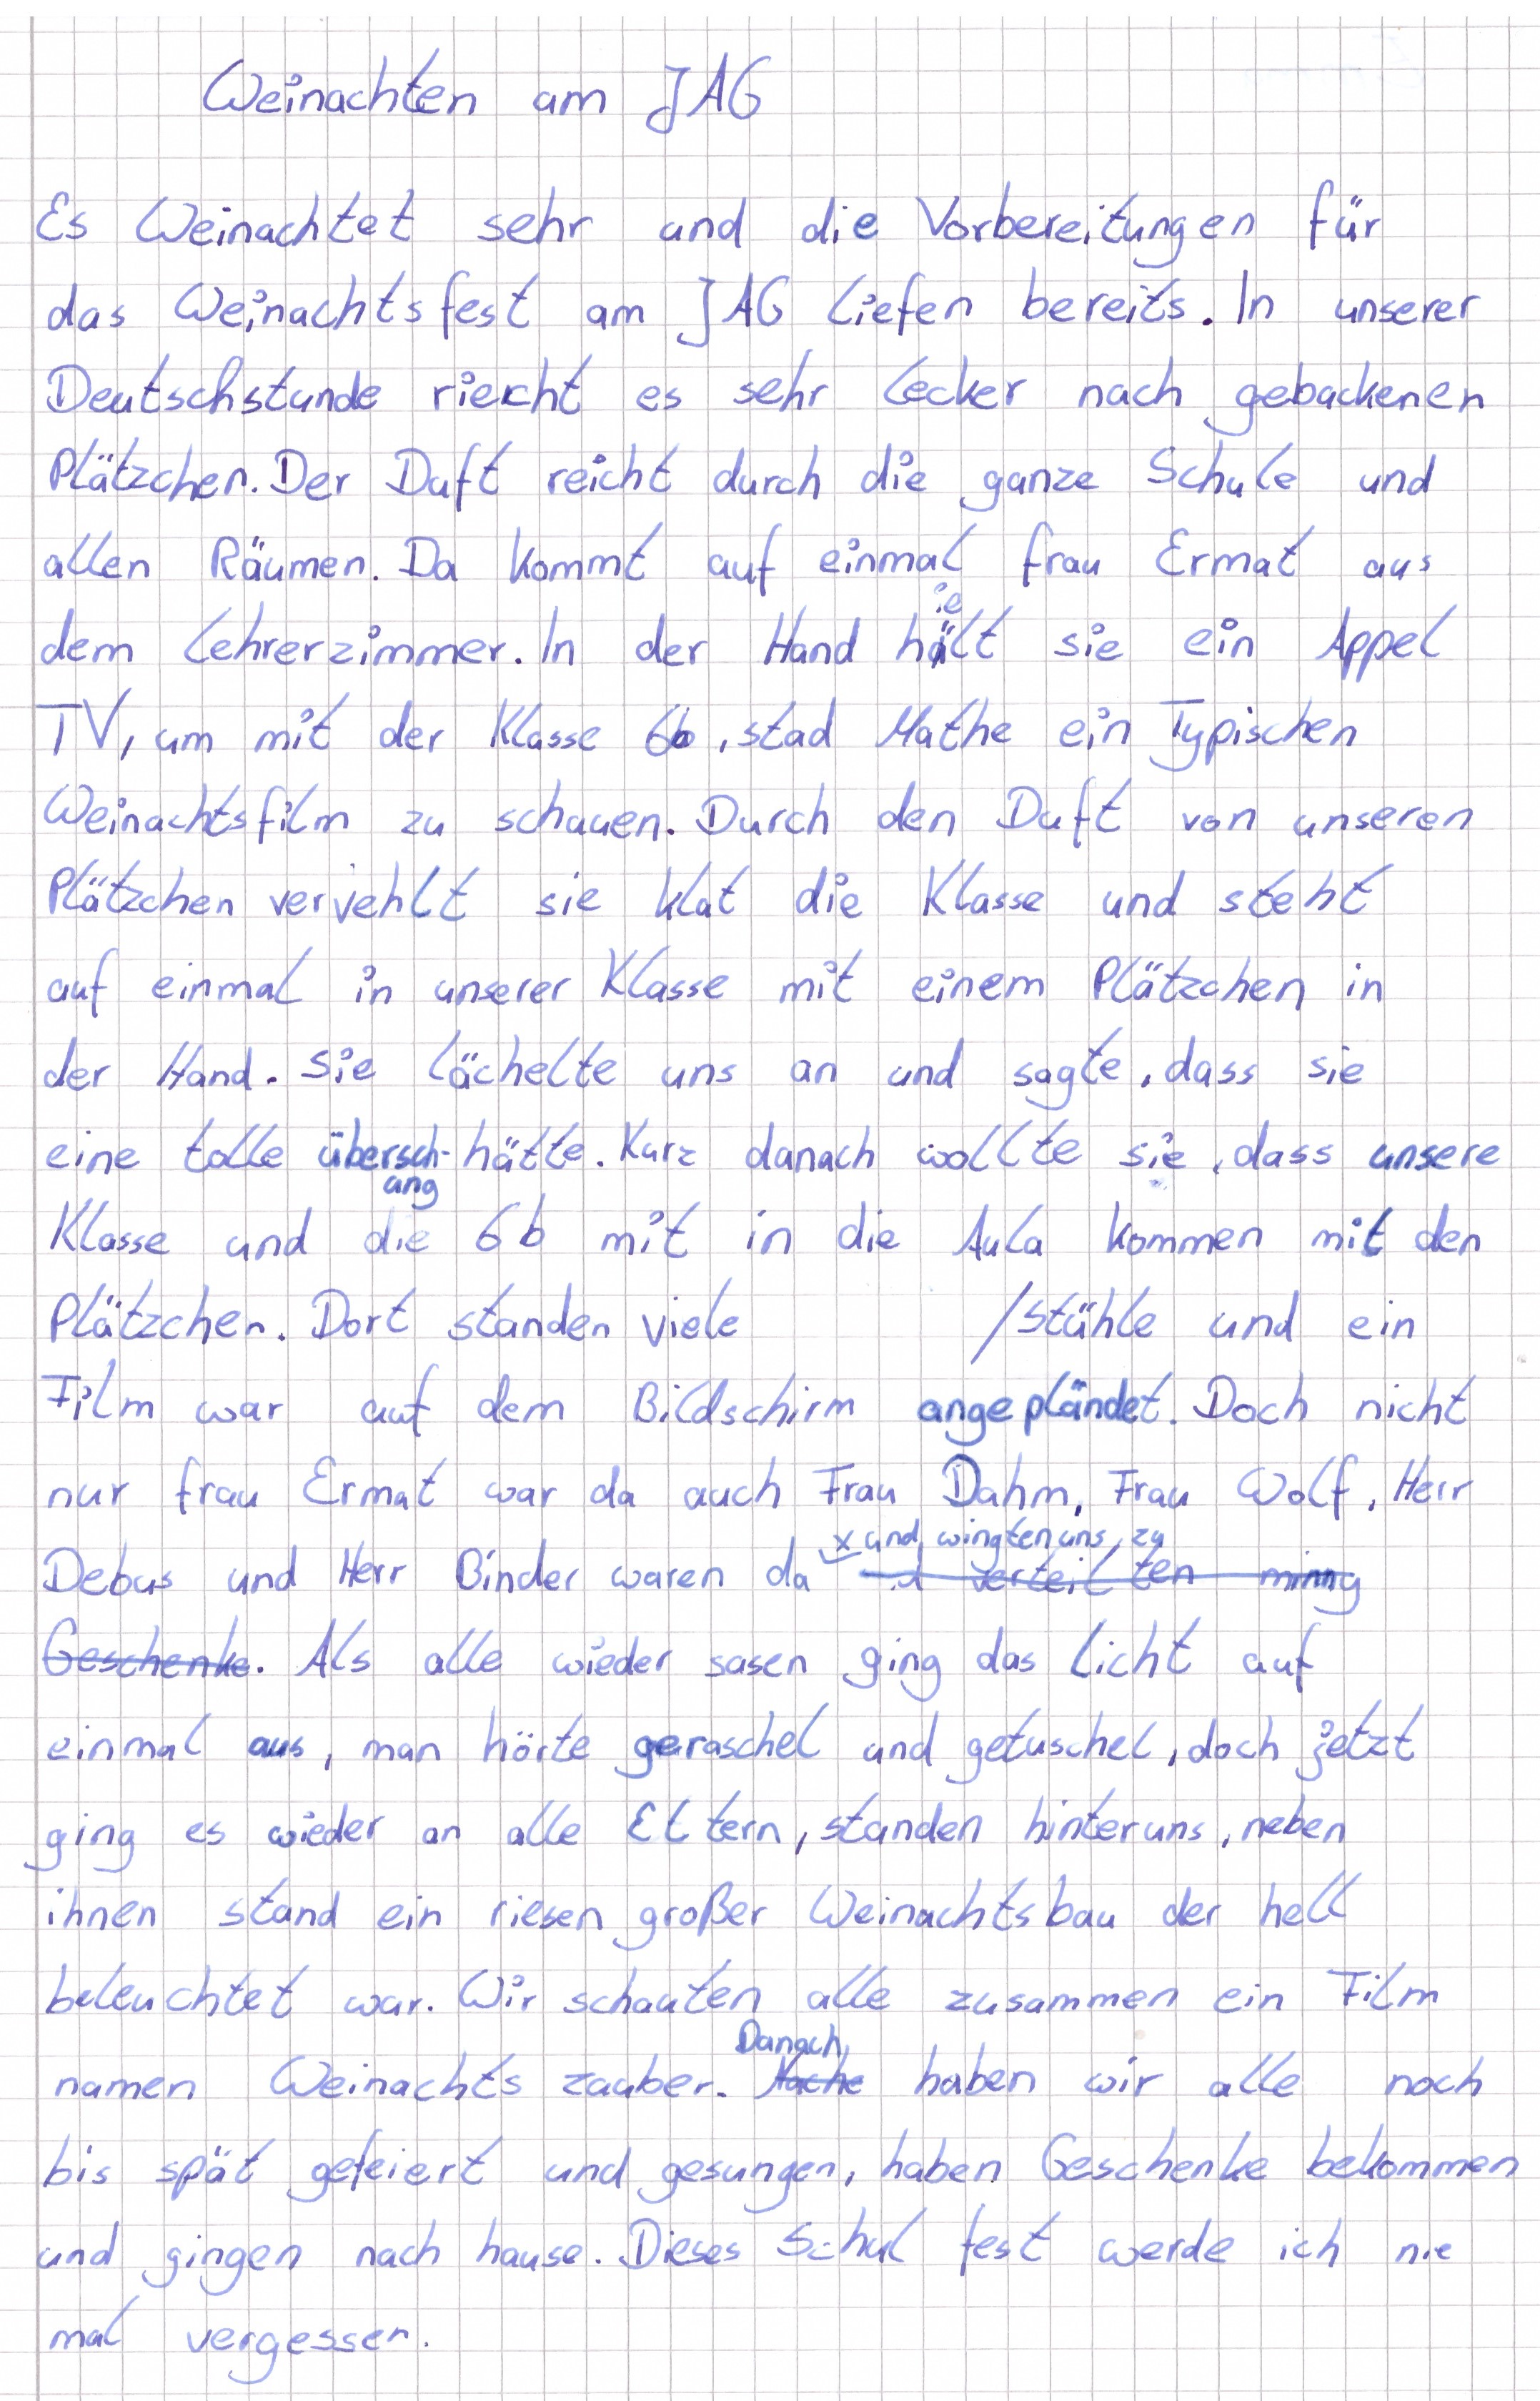 Weinachten am JAG
Es Weinachtet sehr und die Vorbereitungen für
das Weinachtsfest am JAG liefen bereits. In unserer
Deutschstunde riecht es sehr lecker nach gebackenen
Plätzchen. Der Duft reicht durch die ganze Schule und
allen Räumen. Da kommt auf einmal frau Ermat aus
dem Lehrerzimmer. In der Hand hielt sie ein Appel
TV, um mit der Klasse 6b, stad Mathe ein Typischen
Weinachtsfilm zu schauen. Durch den Duft von unseren
Plätzchen vervehlt sie klat die Klasse und steht
auf einmal in unserer Klasse mit einem Plätzchen in
der Hand. Sie lächelte uns an und sagte, dass sie
eine tolle übersch-ang hätte. Kurz danach wollte sie, dass unsere
Klasse und die 6b mit in die Aula kommen mit den
Plätzchen. Dort standen viele /Stühle und ein
Film war auf dem Bildschirm angepländet. Doch nicht
nur frau Ermat war da auch Frau Dahm, Frau Wolf, Herr
x und wingten uns zu
Debus und Herr Binder waren da verteilten
Geschenke. Als alle wieder sasen ging das Licht auf
einmal aus, man hörte geraschel und getuschel, doch jetzt
ging es wieder an alle Eltern, standen hinter uns, neben
ihnen stand ein riesen großer Weinachtsbau der hell
beleuchtet war. Wir schauten alle zusammen ein Film
namen Weinachts zauber. Danach haben wir alle noch
bis spät gefeiert und gesungen, haben Geschenke bekommen
und gingen nach hause. Dieses Schul fest werde ich nie
mal vergessen.